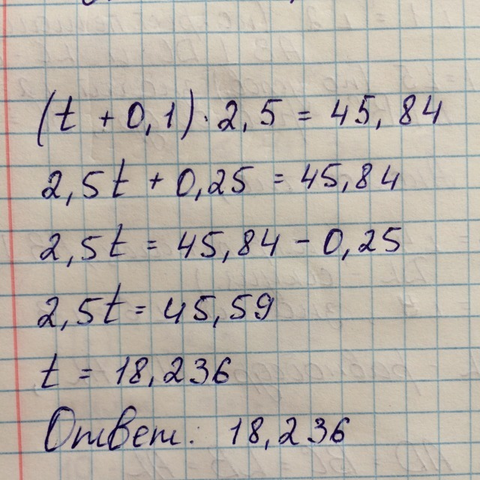 (t + 0,1) · 2,5 = 45,84
2,5t + 0,25 = 45,84
2,5t = 45,84 - 0,25
2,5t = 45,59
t = 18,236
Ответ: 18,236